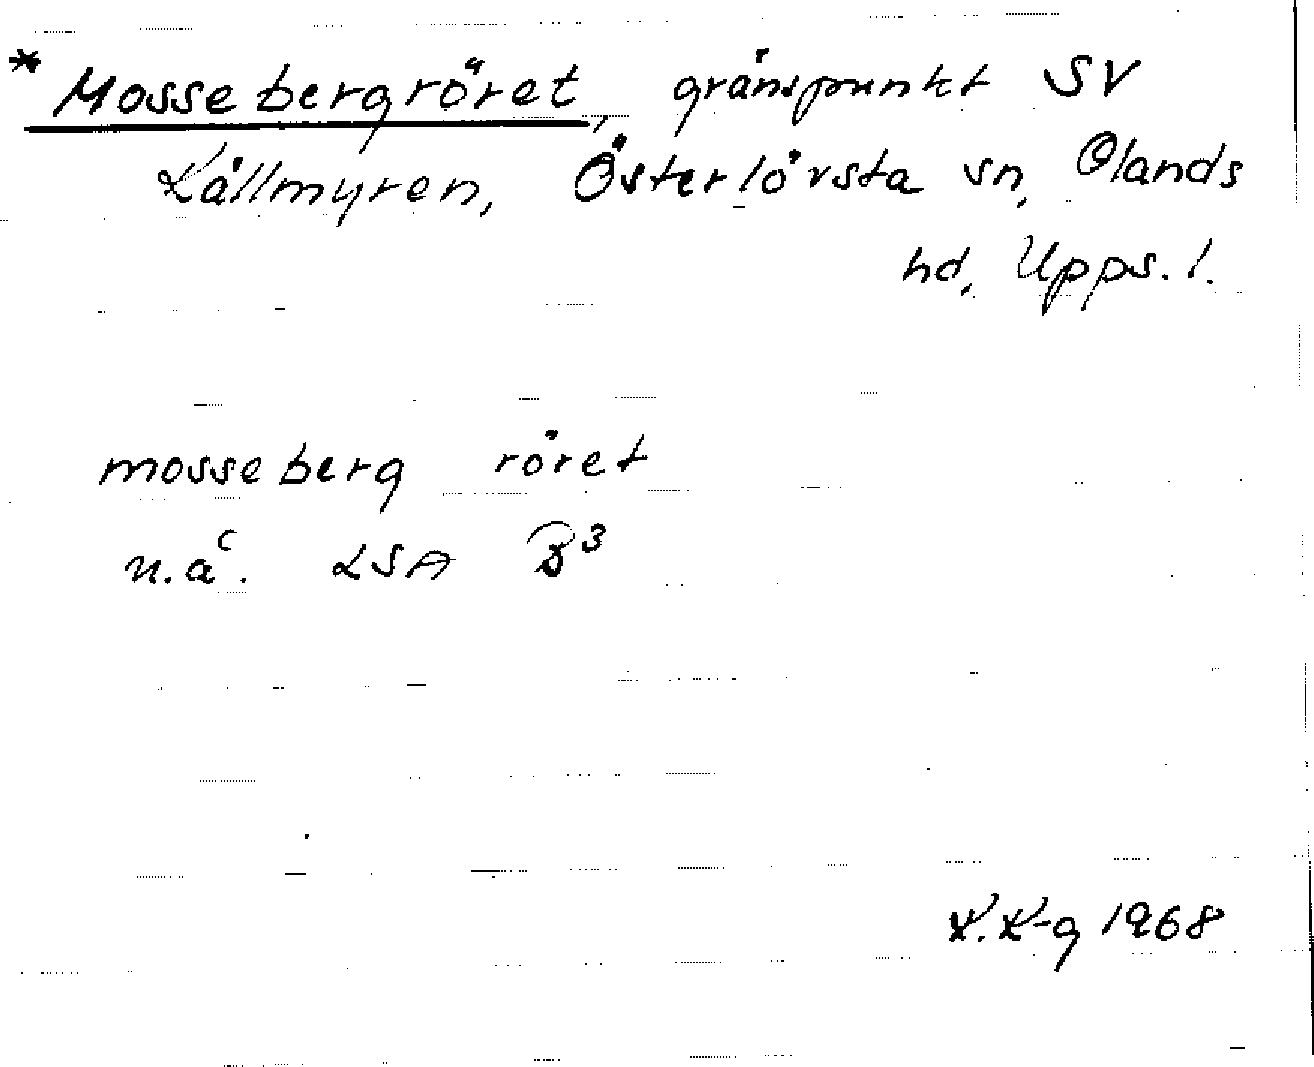 * Mossebergröret, gränspunkt SV
Källmyren, Österlövsta sn, Olands
hd, Upps. l.
mosseberg röret
n.a<sup>c</sup>. LSA B<sup>3</sup>
K. K-g 1968